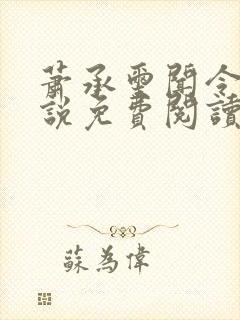 蕭承墨聞令
說免費閱讀
蘇為偉